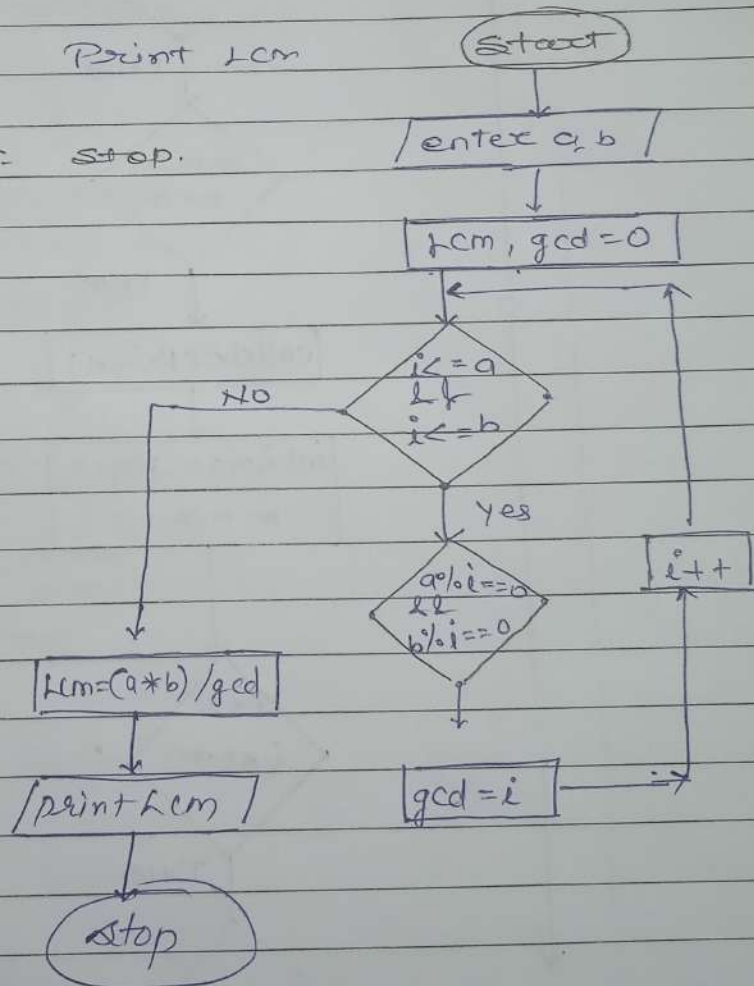 Print Lcm
Start
= Stop.
enter a, b
Lcm, gcd=0
i<=a
&&
i<=b
NO
yes
a%i==0
&&
b%i==0
i++
Lcm=(a*b)/gcd
print Lcm
gcd=i
stop